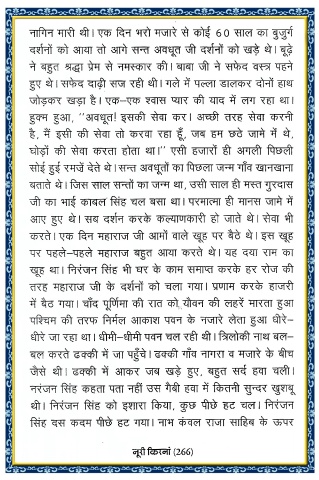 नागिन मारी थी। एक दिन भरो मजारे से कोई 60 साल का बुजुर्ग
दर्शनों को आया तो आगे सन्त अवधूत जी दर्शनों को खड़े थे। बूढ़े
ने बहुत श्रद्धा प्रेम से नमस्कार की। बाबा जी ने सफेद वस्त्र पहने
हुए थे। सफेद दाढ़ी सज रही थी। गले में पल्ला डालकर दोनों हाथ
जोड़कर खड़ा है। एक–एक श्वास प्यार की याद में लग रहा था।
हुक्म हुआ, ''अवधूत! इसकी सेवा कर। अच्छी तरह सेवा करनी
है, मैं इसी की सेवा तो करवा रहा हूँ, जब हम छठे जामे में थे,
घोड़ों की सेवा करता होता था।'' एसी हजारों ही अगली पिछली
सोई हुई रमजें देते थे। सन्त अवधूतों का पिछला जन्म गाँव खानखाना
बताते थे। जिस साल सन्तों का जन्म था, उसी साल ही मस्त गुरदास
जी का भाई काबल सिंह चल बसा था। परमात्मा ही मानस जामे में
आए हुए थे। सब दर्शन करके कल्याणकारी हो जाते थे। सेवा भी
करते। एक दिन महाराज जी आमों वाले खूह पर बैठे थे। इस खूह
पर पहले–पहले महाराज बहुत आया करते थे। यह दया राम का
खूह था। निरंजन सिंह भी घर के काम समाप्त करके हर रोज की
तरह महाराज जी के दर्शनों को चला गया। प्रणाम करके हाजरी
में बैठ गया। चाँद पूर्णिमा की रात को यौवन की लहरें मारता हुआ
पश्चिम की तरफ निर्मल आकाश पवन के नजारे लेता हुआ धीरे–
धीरे जा रहा था। धीमी–धीमी पवन चल रही थी। त्रिलोकी नाथ बल–
बल करते ढक्की में जा पहुँचे। ढक्की गाँव नागरा व मजारे के बीच
जैसे थी। ढक्की में आकर जब खड़े हुए, बहुत सर्द हवा चली।
नरंजन सिंह कहता पता नहीं उस गैबी हवा में कितनी सुन्दर खुशबू
थी। निरंजन सिंह को इशारा किया, कुछ पीछे हट चल। निरंजन
सिंह दस कदम पीछे हट गया। नाभ कंवल राजा साहिब के ऊपर
नूरी किरनां (266)